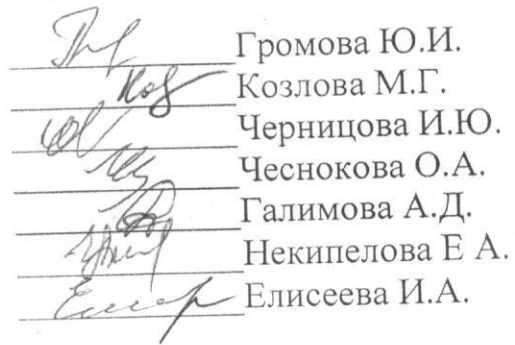 Громова Ю.И.
Козлова М.Г.
Черницова И.Ю.
Чеснокова О.А.
Галимова А.Д.
Некипелова Е А.
Елисеева И.А.